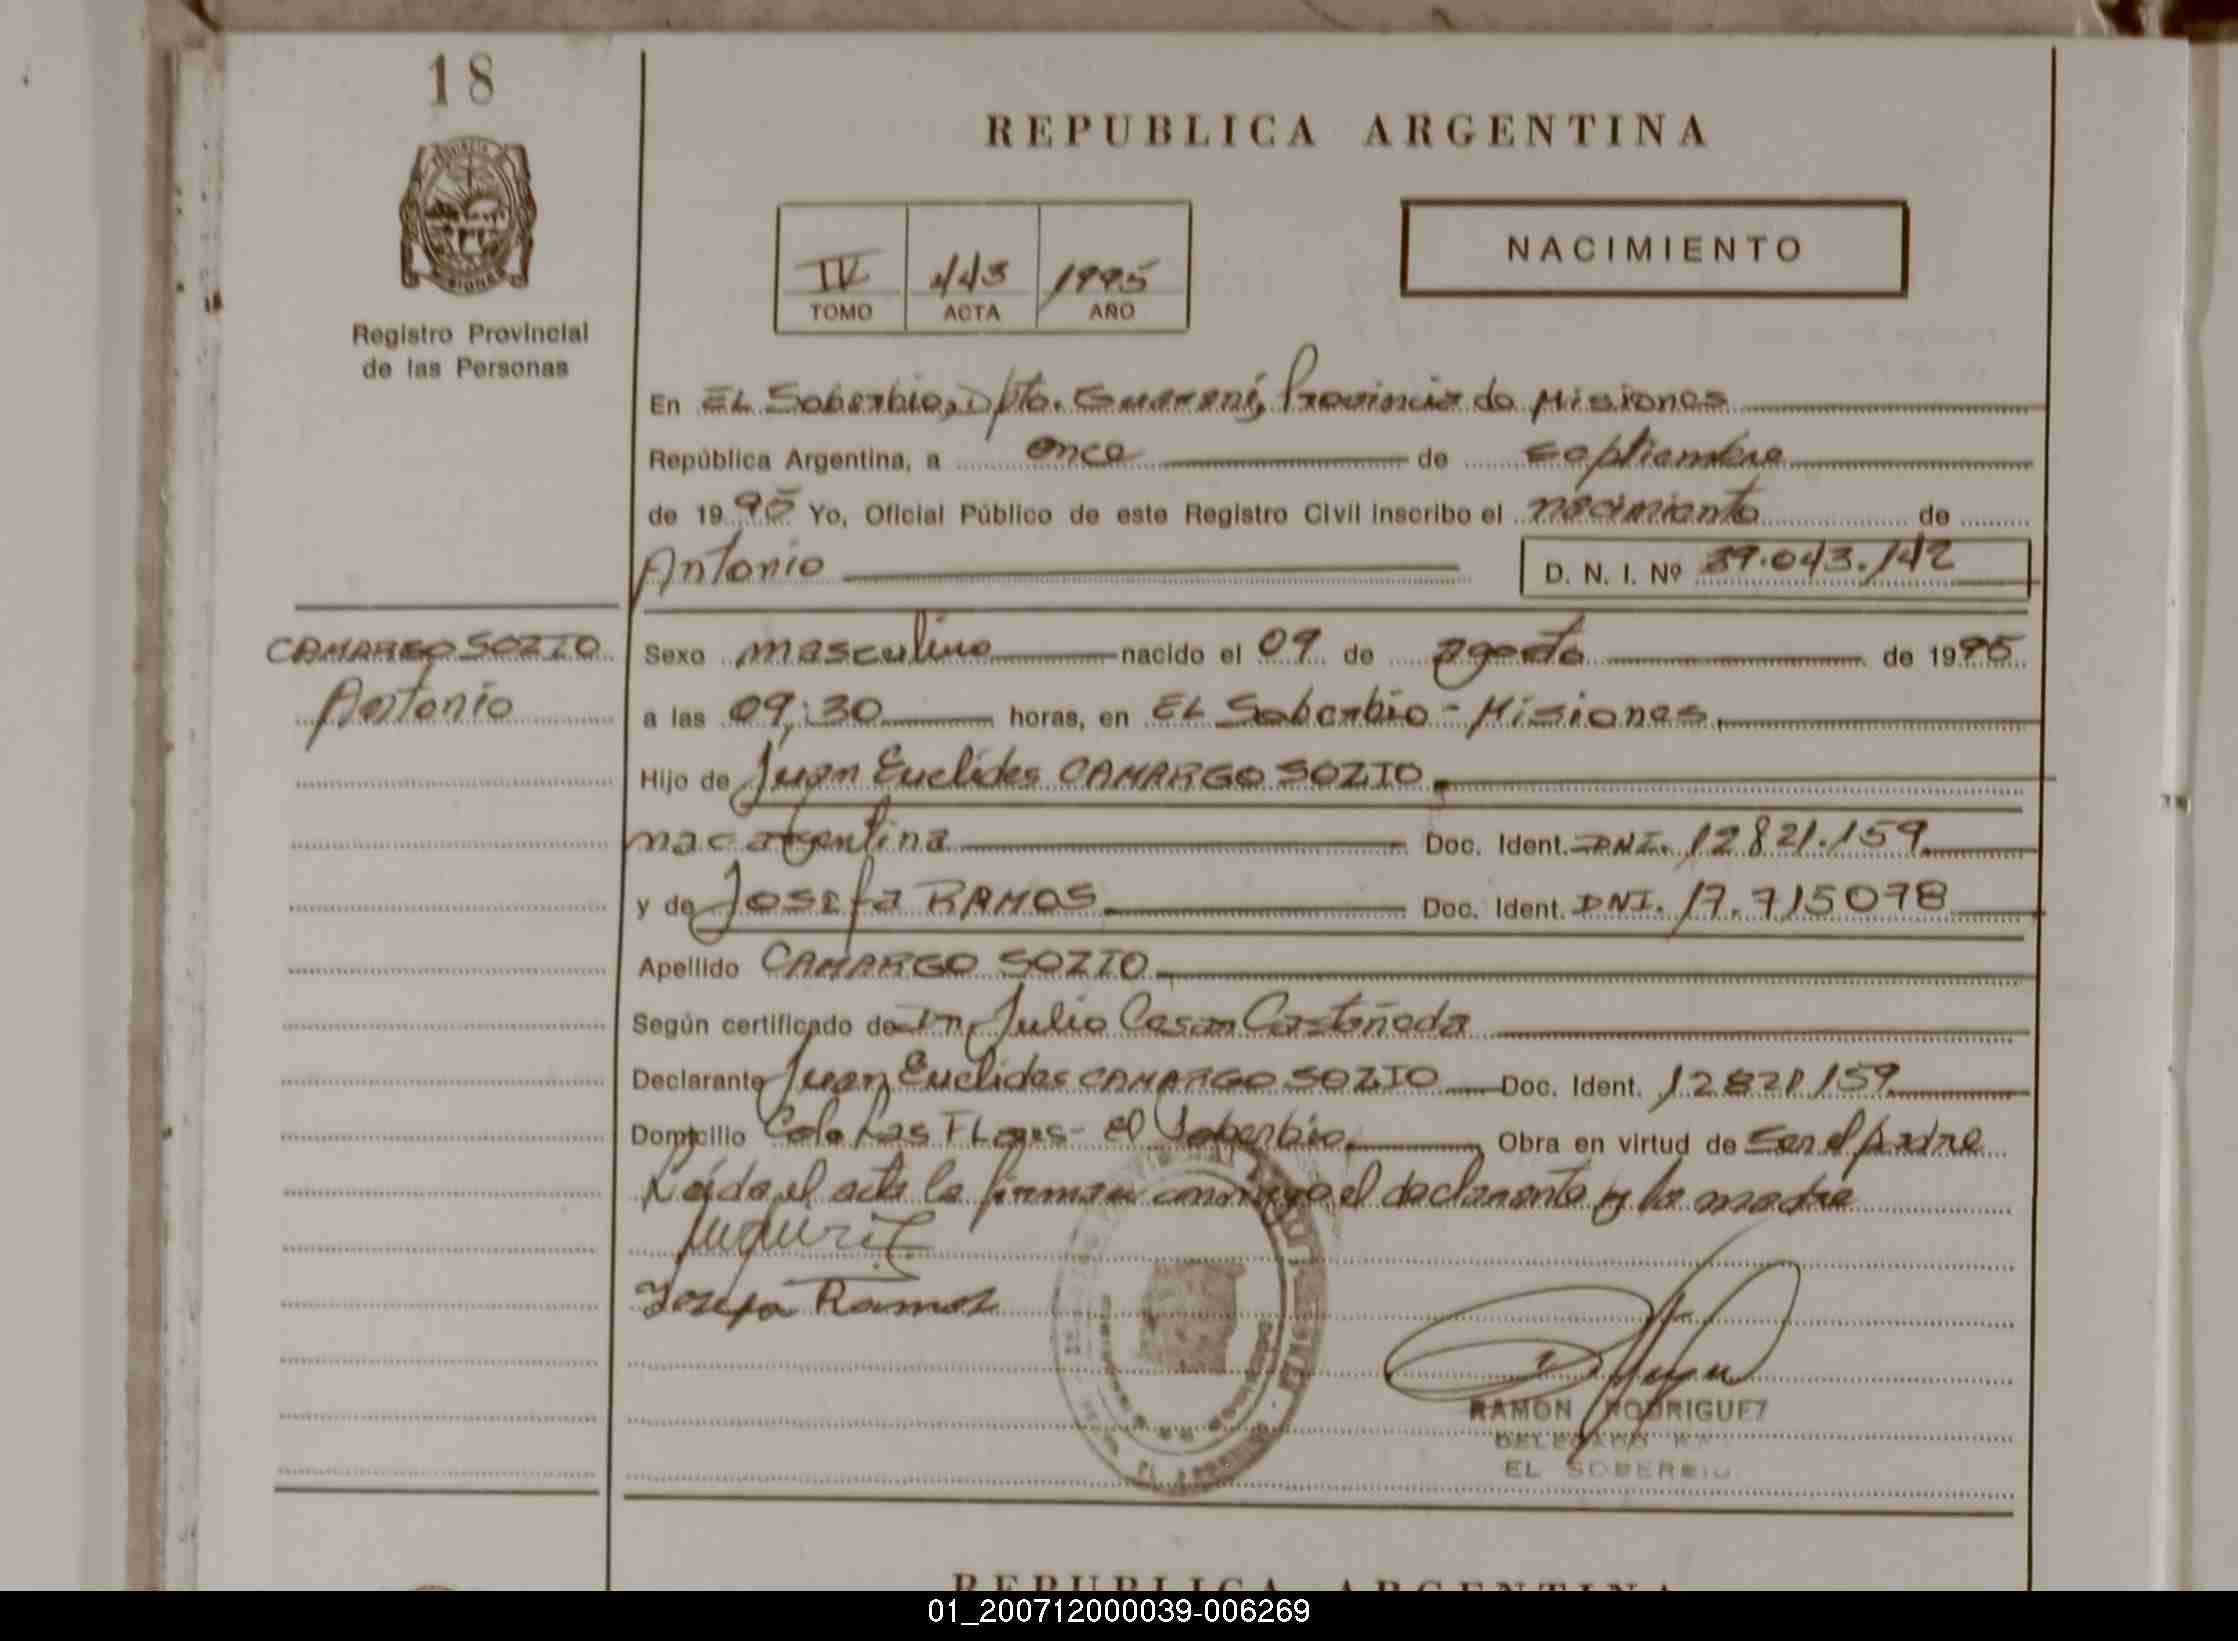 18
REPUBLICA ARGENTINA
NACIMIENTO
IV 443 1995
TOMO ACTA AÑO
Registro Provincial
de las Personas
En EL Soberbio, Dpto. Guaraní, Provincia de Misiones
República Argentina, a once de septiembre
de 1995 Yo, Oficial Público de este Registro Civil inscribo el nacimiento de
Antonio D. N. I. Nº 39.043.142
CAMARGO SOZIO
Antonio
Sexo masculino nacido el 09 de agosto de 1995
a las 09:30 horas, en EL Soberbio - Misiones
Hijo de Juan Euclides CAMARGO SOZIO
nac argentina Doc. Ident. DNI. 12821.159
y de Josefa RAMOS Doc. Ident. DNI. 17.715078
Apellido CAMARGO SOZIO
Según certificado de Dr. Julio Cesar Castañeda
Declarante Juan Euclides CAMARGO SOZIO Doc. Ident. 12821159
Domicilio Cola Las Flores - el Soberbio Obra en virtud de ser el padre
Leída el acta la firman conmigo el declarante y la madre
Josefa Ramos
RAMON RODRIGUEZ
DELEGADO
EL SOBERBIO
REPUBLICA ARGENTINA
01_200712000039-006269